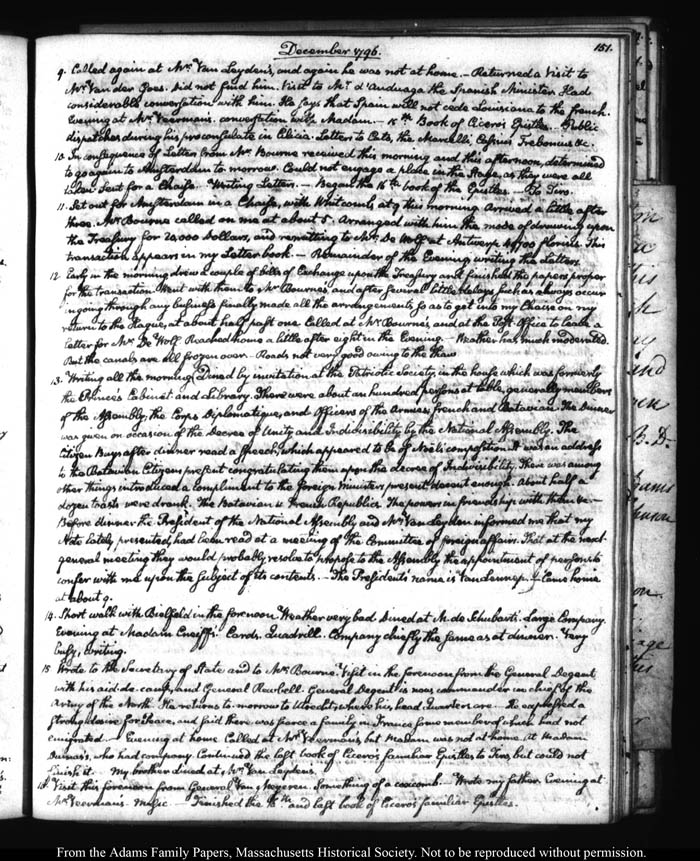 December 1796.
151.
9. Called again at Mr. Van Leyden's, and again he was not at home. - Returned a visit to
Mr. Van der Goes. Did not find him. Visit to Mr. d'Anduaga the Spanish Minister. Had
considerable conversation with him. He says that Spain will not cede Louisiana to the french.
Evening at Mr. Veerman's. conversation with Madam. - 15th. Book of Cicero's Epistles. Public
dispatches during his proconsulate in Cilicia. Letters to Cato, the Marcelli, Cassius Trebonius &c.
10. In consequence of Letters from Mr. Bourne received this morning and this afternoon, determined
to go again to Amsterdam to morrow. Could not engage a place in the Stage, as they were all
taken. Sent for a Chaise. Writing Letters. - Began the 16th. book of the Epistles. To Tiro.
11. Set out for Amsterdam in a Chaise, with Whitcomb, at 9 this morning. Arrived a little after
three. Mr. Bourne called on me at about 5. Arranged with him the mode of drawing upon
the Treasury for 20,000 Dollars, and remitting to Mr. De Wolf at Antwerp florins. This
transaction appears in my Letter book. - Remainder of the Evening writing the Letters.
12. Early in the morning drew a couple of bills of Exchange upon the Treasury and finished the papers proper
for the transaction. Went with them to Mr. Bourne's, and after several little delays such as always occur
in going through any business finally made all the arrangements so as to get into my Chaise on my
return to the Hague, at about half past one. Called at Mr. Bourne's, and at the Post-Office to leave a
letter for Mr. De Wolf. Reached home a little after eight in the Evening. - Weather has much moderated.
But the canals are all frozen over. Roads not very good owing to the thaw.
13. Writing all the morning. Dined by invitation at the Patriotic Society, in the house which was formerly
the Princes Cabinet and Library. There were about an hundred persons at table, generally members
of the Assembly, the Corps Diplomatique, and Officers of the Armies, french and Batavian. The Dinner
was given on occasion of the Decree of Unity and Indivisibility by the National Assembly. The
Citizen Buys after dinner read a speech, which appeared to be of his composition. It was an address
to the Batavian Citizens present congratulating them upon the decree of Indivisibility. There was among
other things introduced a compliment to the foreign Ministers present, decent enough. About half a
dozen toasts were drank. The Batavian & French Republics. The powers in friendship with them &c. -
Before dinner the President of the National Assembly and Mr. Van Leyden informed me that my
Note lately presented, had been read at a meeting of the Committee of foreign affairs. That at the next
general meeting they would probably resolve to propose to the Assembly the appointment of persons to
confer with me upon the subject of its contents. - The President's name is Came home
at about 9.
14. Short walk with Bielfeld in the forenoon. Weather very bad. Dined at M. de Schubart's. Large Company.
Evening at Madam Cards. Quadrill. Company chiefly the same as at dinner. Very
busy, writing.
15. Wrote to the Secretary of State and to Mr. Bourne. Visit in the forenoon from the General Dejeant
with his aid-de-camp, and General Rewbell. General Dejeant is now commander in chief of the
Army of the North. He returns to-morrow to Utrecht, where his head Quarters are. He expressed a
strong desire for Peace, and said there was scarce a family in France some member of which had not
emigrated. - Evening at home. Called at Mr. Veerman's but Madam was not at home. At Madam
Dumas's, who had company. Continued the last book of Cicero's familiar Epistles to Tiro, but could not
finish it. - My brother dined at Mr. Van Leyden's.
16. Visit this forenoon from General Van Something of a coxcomb. - Wrote my father. Evening at
Mr. Veerman's. Music. - Finished the 16th. and last book of Cicero's familiar Epistles.
From the Adams Family Papers, Massachusetts Historical Society. Not to be reproduced without permission.